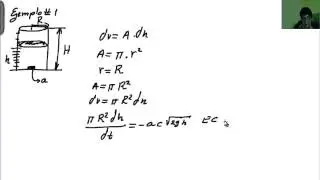 Ejemplo #1
R
H
h
a
dv = A . dh
A = π . r²
r = R
A = π R²
dv = π R² dh
π R² dh / dt = -ac √2gh EC